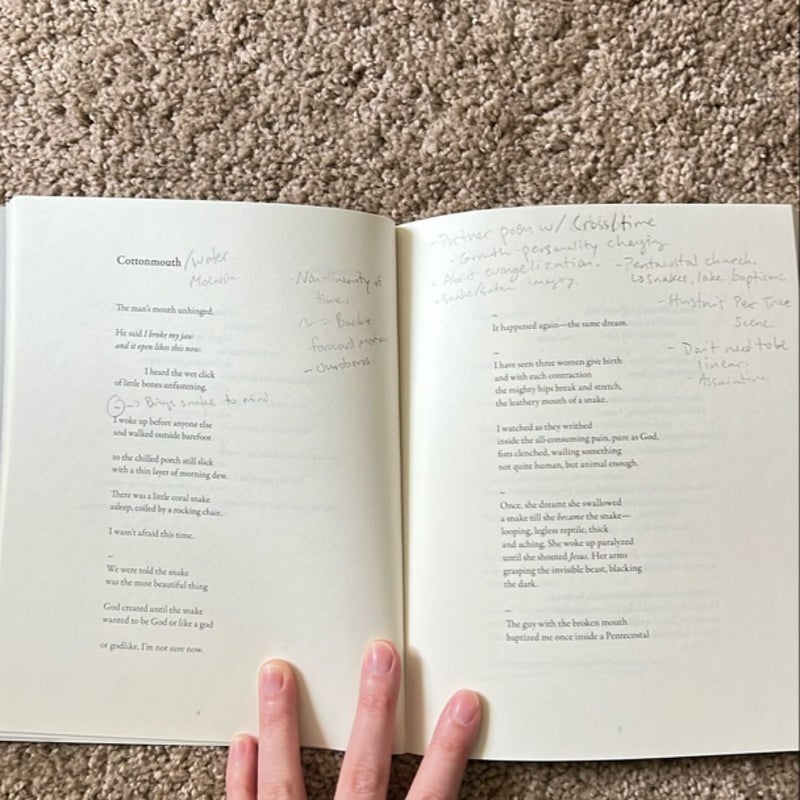 Cottonmouth /water
Mocasin
- Non-linearity of
time.
~ = Back &
forward motion
- Ouroboros
The man's mouth unhinged.
He said I broke my jaw
and it open likes this now.
I heard the wet click
of little bones unfastening.
~ -> Brings snake to mind.
I woke up before anyone else
and walked outside barefoot
to the chilled porch still slick
with a thin layer of morning dew.
There was a little coral snake
asleep, coiled by a rocking chair.
I wasn't afraid this time.
~
We were told the snake
was the most beautiful thing
God created until the snake
wanted to be God or like a god
or godlike. I'm not sure now.
- Partner poem w/ Cross/time
- Growth - personality changing
- About evangelization.
- Snake/Satan imagery.
- Pentacostal church.
↳ snakes, lake, baptisms.
- Hurston's Pear Tree
Scene.
- Don't need to be
linear.
~
It happened again—the same dream.
~
I have seen three women give birth
and with each contraction
the mighty hips break and stretch,
the leathery mouth of a snake.
I watched as they writhed
inside the all-consuming pain, pure as God,
fists clenched, wailing something
not quite human, but animal enough.
~
Once, she dreamt she swallowed
a snake till she became the snake—
looping, legless reptile, thick
and aching. She woke up paralyzed
until she shouted Jesus. Her arms
grasping the invisible beast, blacking
the dark.
~
The guy with the broken mouth
baptized me once inside a Pentecostal